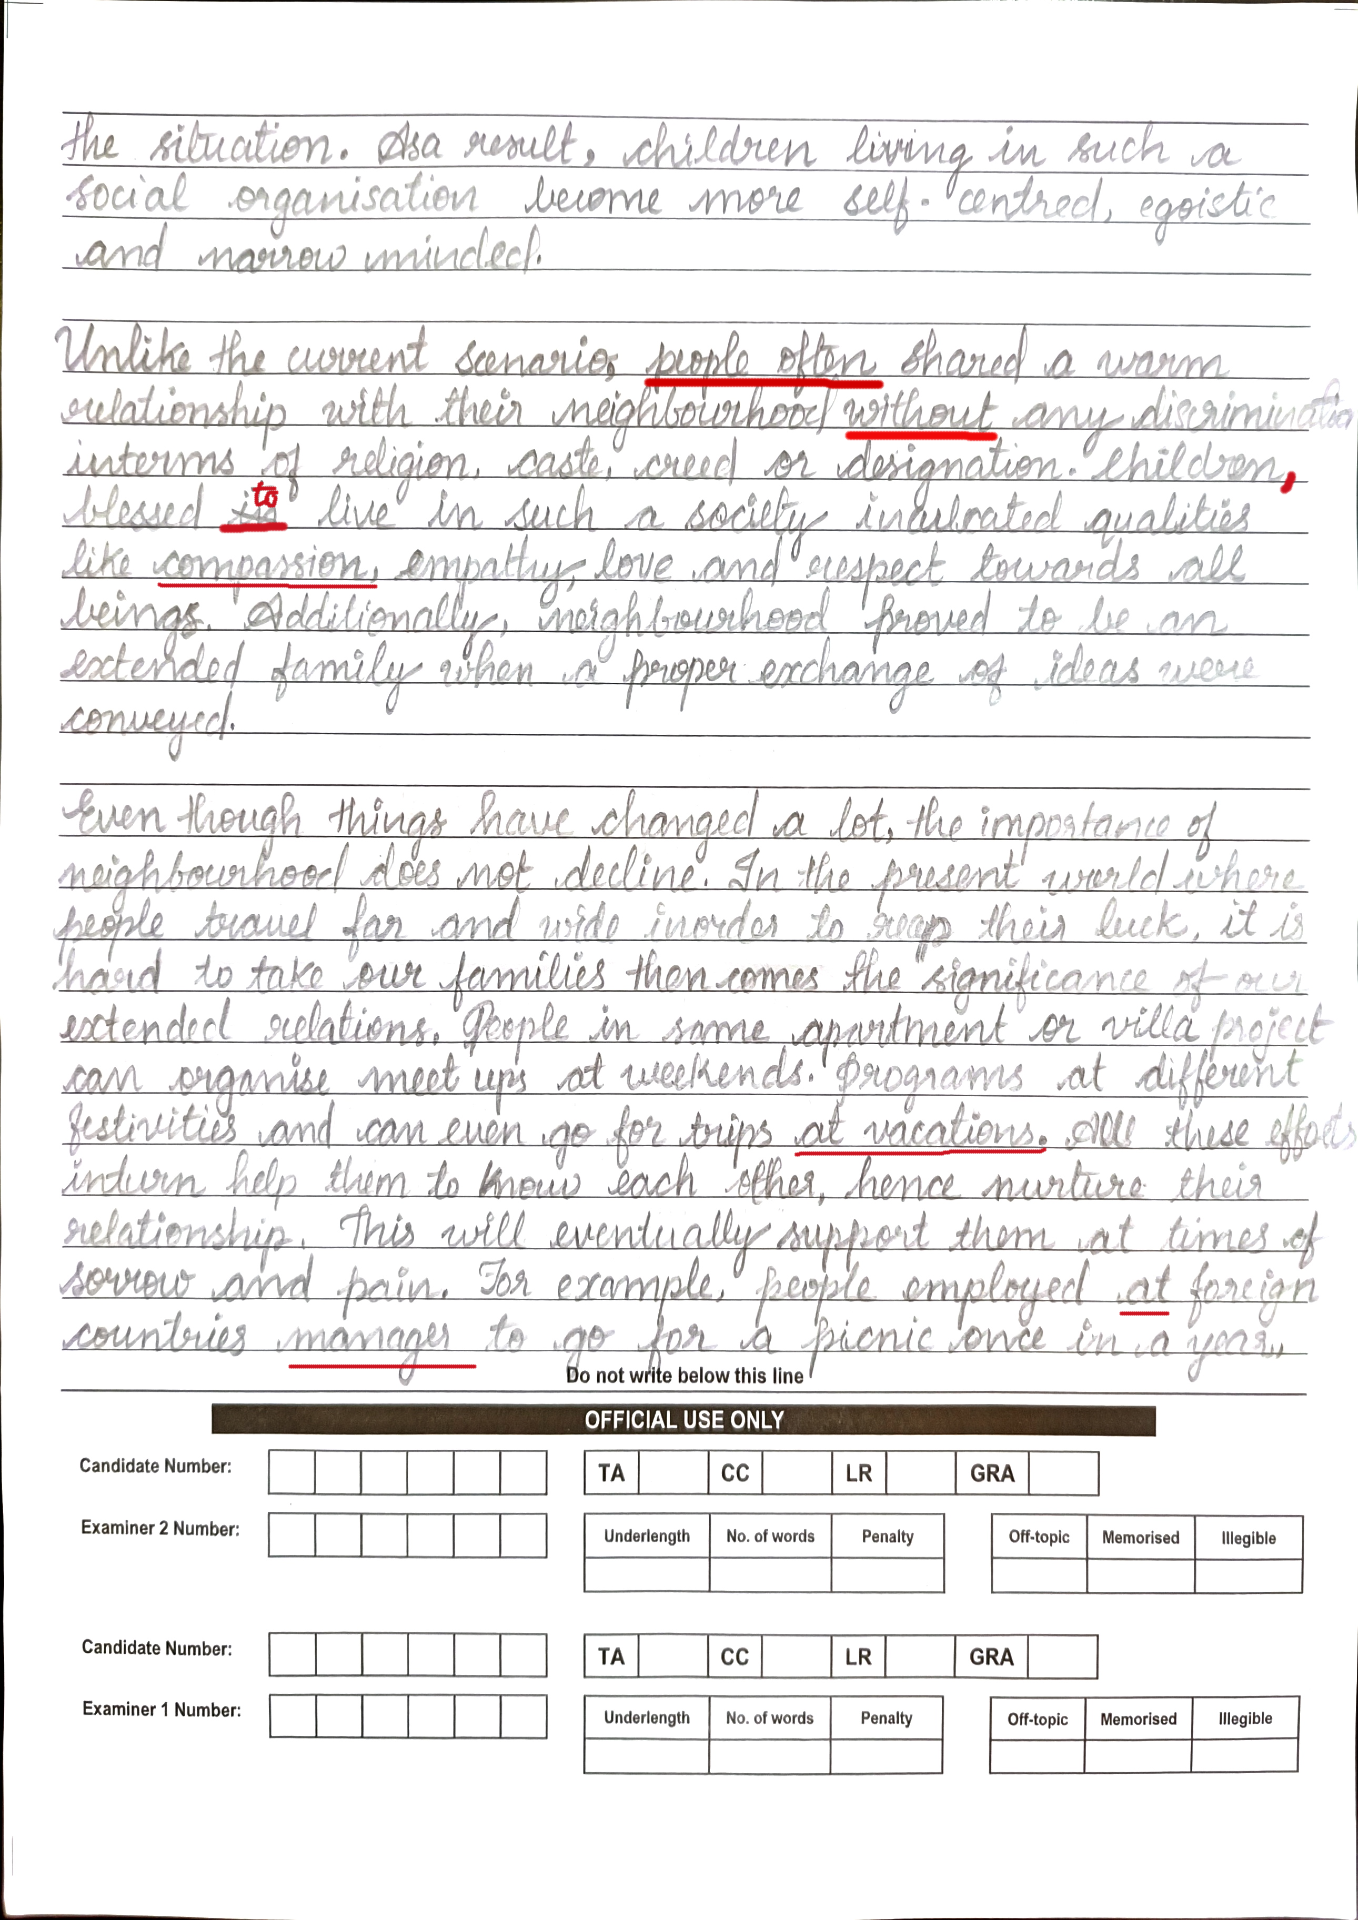 the situation. Asa result, children living in such a
social organisation become more self-centred, egoistic
and narrow minded.
Unlike the current scenario, people often shared a warm
relationship with their neighbourhood without any discrimination
interms of religion, caste, creed or designation. Children,
blessed to live in such a society inculrated qualities
like compassion, empathy, love and respect towards all
beings. Additionally, neighbourhood proved to be an
extended family when a proper exchange of ideas were
conveyed.
Even though things have changed a lot, the importance of
neighbourhood does not decline. In the present world where
people travel far and wide inorder to reap their luck, it is
hard to take our families then comes the significance of our
extended relations. People in same apartment or villa project
can organise meet ups at weekends. Programs at different
festivities and can even go for trips at vacations. All these efforts
inturn help them to know each other, hence nurture their
relationship. This will eventually support them at times of
sorrow and pain. For example, people employed at foreign
countries manager to go for a picnic once in a year,
Do not write below this line
OFFICIAL USE ONLY
Candidate Number: TA CC LR GRA
Examiner 2 Number: Underlength No. of words Penalty Off-topic Memorised Illegible
Candidate Number: TA CC LR GRA
Examiner 1 Number: Underlength No. of words Penalty Off-topic Memorised Illegible